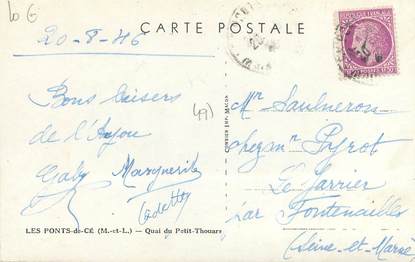 CARTE POSTALE
20-8-46
Bons baisers
de l'Anjou
Gaby Marguerite
Cadette
(49)
Mr Saulneron
chez mr Pyrot
Le Jarrier
par Fontenailles
(Seine-et-Marne)
LES PONTS-de-CÉ (M.-et-L.) — Quai du Petit-Thouars